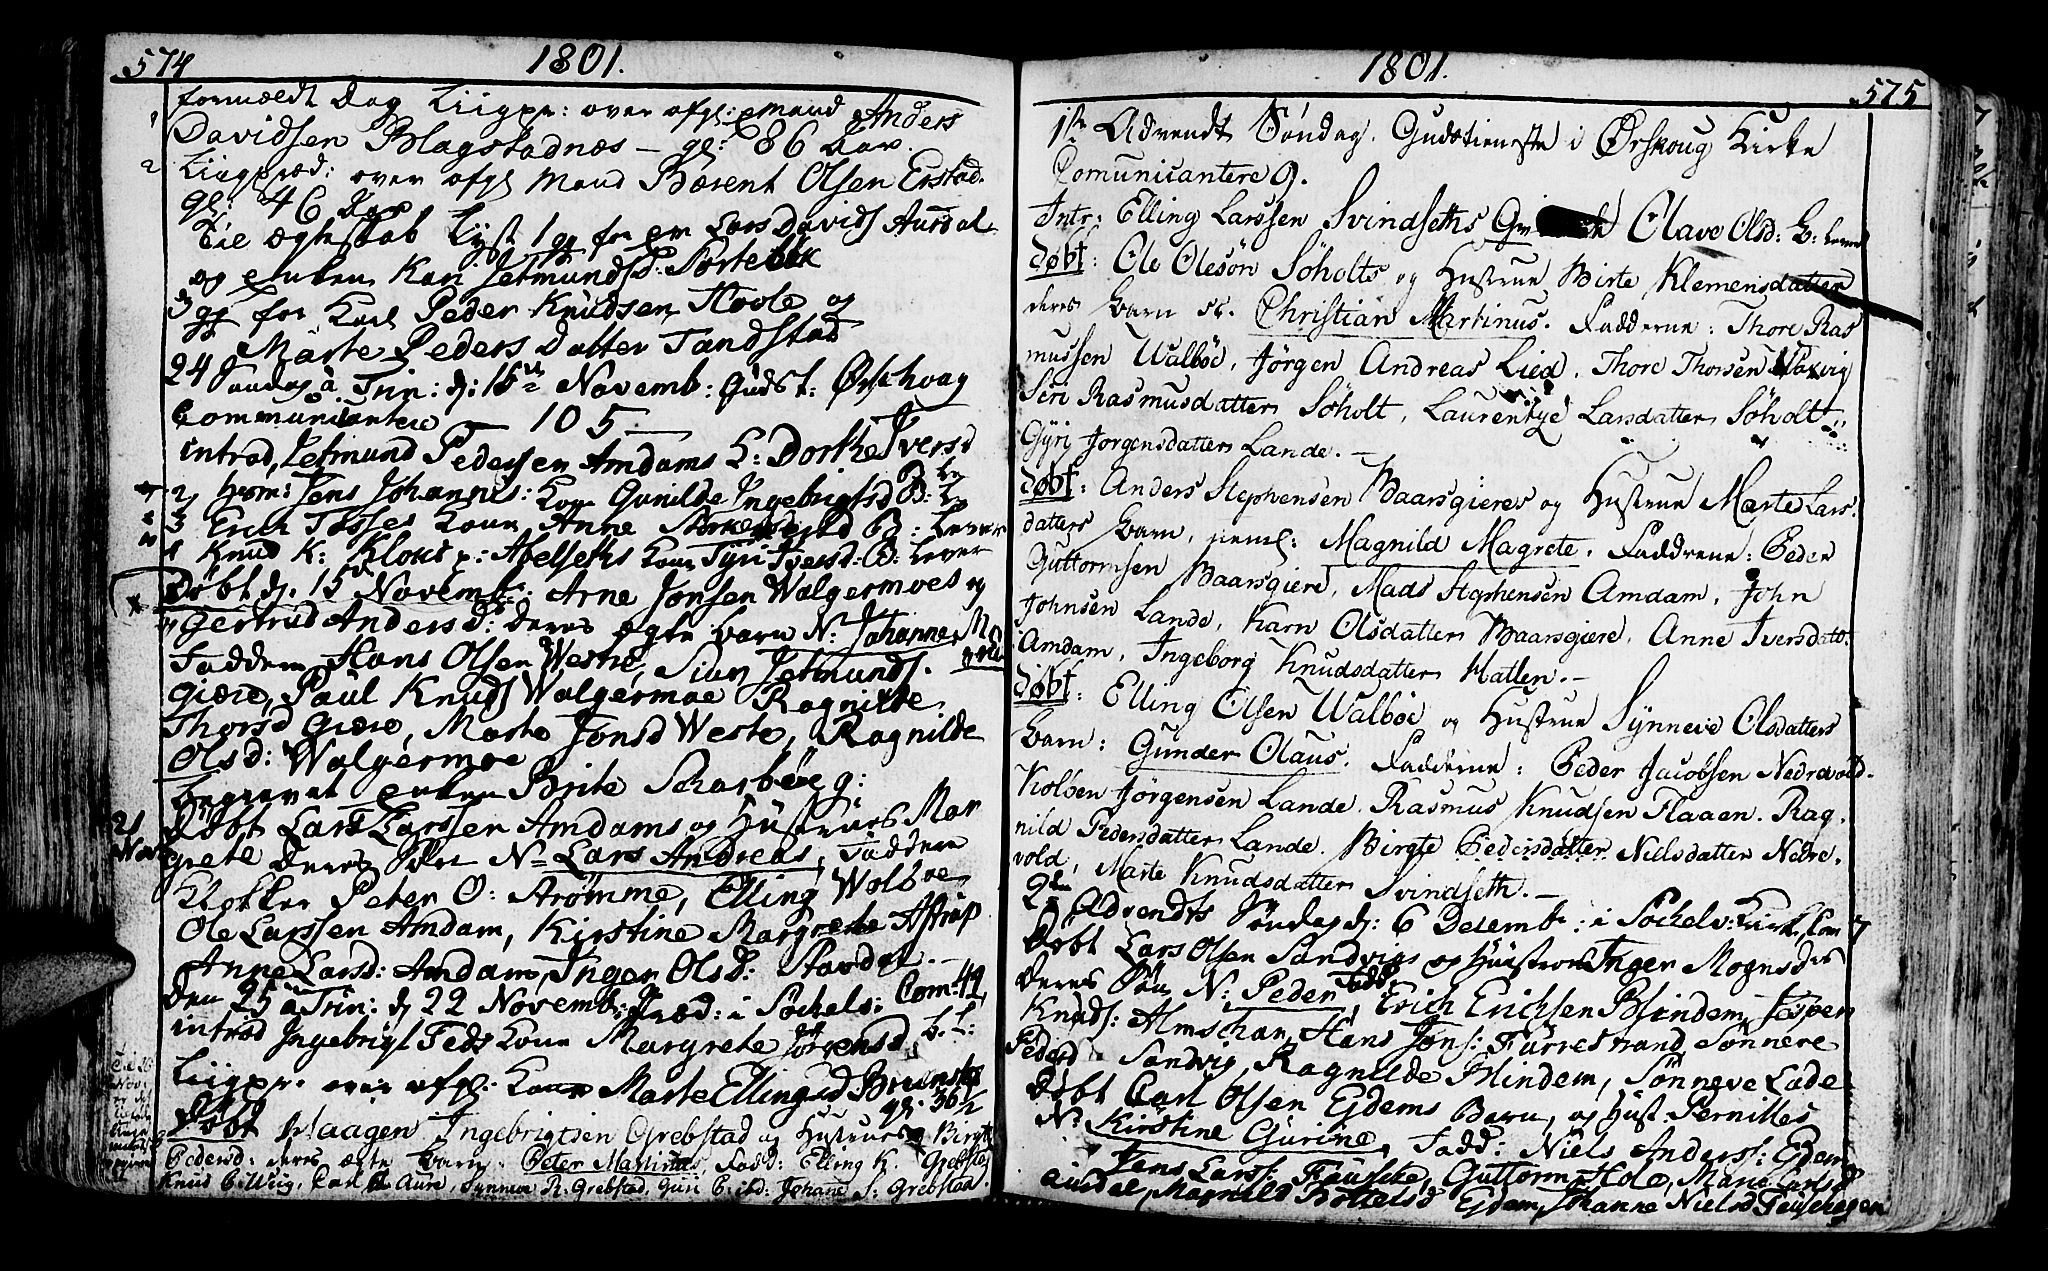 574
1801.
formældt Dag Liigpr: over afgl: mand Anders
1 Davidsen Blagstadnæs — gl: 86 Aar.
2 Liigpræd: over afgl Mand Bærent Olsen Erstad.
gl: 46 Aar
til ægteskab Lyst 1 gg for em Lars Davids Aursdal
og enken Kari Jetmundsd:
3 gg for Karl Peder Knudsen Hovle og
Marte Peders Datter Tandstad
24 Søndag å Trin: d: 15de Novemb: Gudst: Ørschoug
Communicantere — 105 —
introd, Jetmund Pedersen Amdams K: Dorthe Ivers d
2 hom: Jens Johannis: Kone Gunilde Ingebrigtsd B: L:
3 Erich Tosses Kone Anne
4 Knud K: Klokt p: Abelseths Kone Gyri Iversd: B: Lever
Døbt d. 15 Novemb: Arne Jonsen Walgermoes og
Gertrud Andersd: deres egte barn N: Johanne
Faddern Hans Olsen Weste, Sivn Jetmunds.
Giære, Paul Knuds Walgermoe Ragnilde
Thorsd Giære, Marte Jonsd Weste, Ragnilde
Olsd: Walgermoe
begravet enken Brite Scharbøe g:
21 Nov Døbt Lars Larssen Amdams og Hustrues Mar
grete deres Søn N— Lars Andreas, Faddern
Klokker Peter O: Strømme, Elling Walbøe
Ole Larssen Amdam, Kirstine Margrete Astrup
Anne Larsd: Amdam, Inger Olsd: Stavdal.—
Den 25 å Trin: d 22 Novemb: Præd: i Søchels: Com: 49
introd Ingebrigt Feds Kone Margrete Jørgensd b. l:
Liigpr: over afgl: Kone Marte Ellingsd
gl: 36½
Døbt Haagen Ingebrigtsen Grebstad og Hustrues Birgt
Pedersd: deres ægte barn: Peter Martinus, Fadd: Elling K. Grebstad
Knud Wiig, Carl Aure, Synneve R: Grebstad, Guri Johane S: Grebstad.
1801.
575
1ste Advendt Søndag. Gudstieneste i Ørskoug Kirke
Comunicantere 9.
Intr: Elling Larssen Svindseths Olave Olsd: B: lever
døbt: Ole Olesön Söholts og Hustrue Birte Klemensdatter
deres barn N. Christian Martinus. Fadderne: Thore Ras
mussen Walböe, Jörgen Andreas Lied, Thore Thorsen Waxvig
Siri Rasmusdatter Söholt, Laurentze Larsdatter Söholt
Gyri Jorgensdatter Lande.—
døbt: Anders Stephensen Baarsgieres og Hustrue Marte Lars
datters barn, neml: Magnild Magrete. Faddrene: Peder
Guttormsen Baarsgiere, Mads Stephensen Amdam, John
Johnsen Lande, Karn Olsdatter Baarsgiere, Anne Iversdatt:
Amdam, Ingeborg Knudsdatter Hatlen.—
døbt: Elling Olsen Walböe og Hustrue Synneve Olsdatters
barn: Gunder Olaus. Fadderne: Peder Jacobsen Nedrevold.
Kolben Jörgensen Lande. Rasmus Knudsen Flaaen. Rag.
nild Pedersdatter Lande. Birgte Pedersdatter Nielsdatter Nedre.
vold, Marte Knudsdatter Svindseth.—
2den Advendts Søndag d: 6 Decemb: i Søchels: Kirke, Com 7
Døbt Lars Olsen Sandvigs og Hustrues Inger Mognsd
deres Søn N: Peder Fadd. Erich Erichsen Blindem, Jesper
Knuds: Almschar, Hans Jons: Furrestrand Sønnere
Pedersd Sandvig, Ragnilde Blindem, Sønneve Lade
Døbt Carl Olsen Ejdems Barn, og Hust: Pernilles
N: Kirstine Gurine, Fadd: Niels Anders: Ejdem
Jens Lars: Fauske, Guttorm Hole, Marie Larsd
Aurdal, Magnild Bottelsd Ejdem, Johanne Nielsd